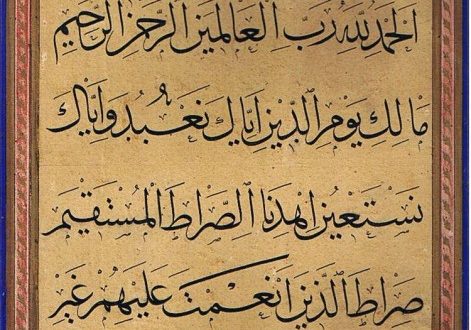 الحمد لله رب العالمين الرحمن الرحيم
مالك يوم الدين اياك نعبد واياك
نستعين اهدنا الصراط المستقيم
صراط الذين انعمت عليهم غير